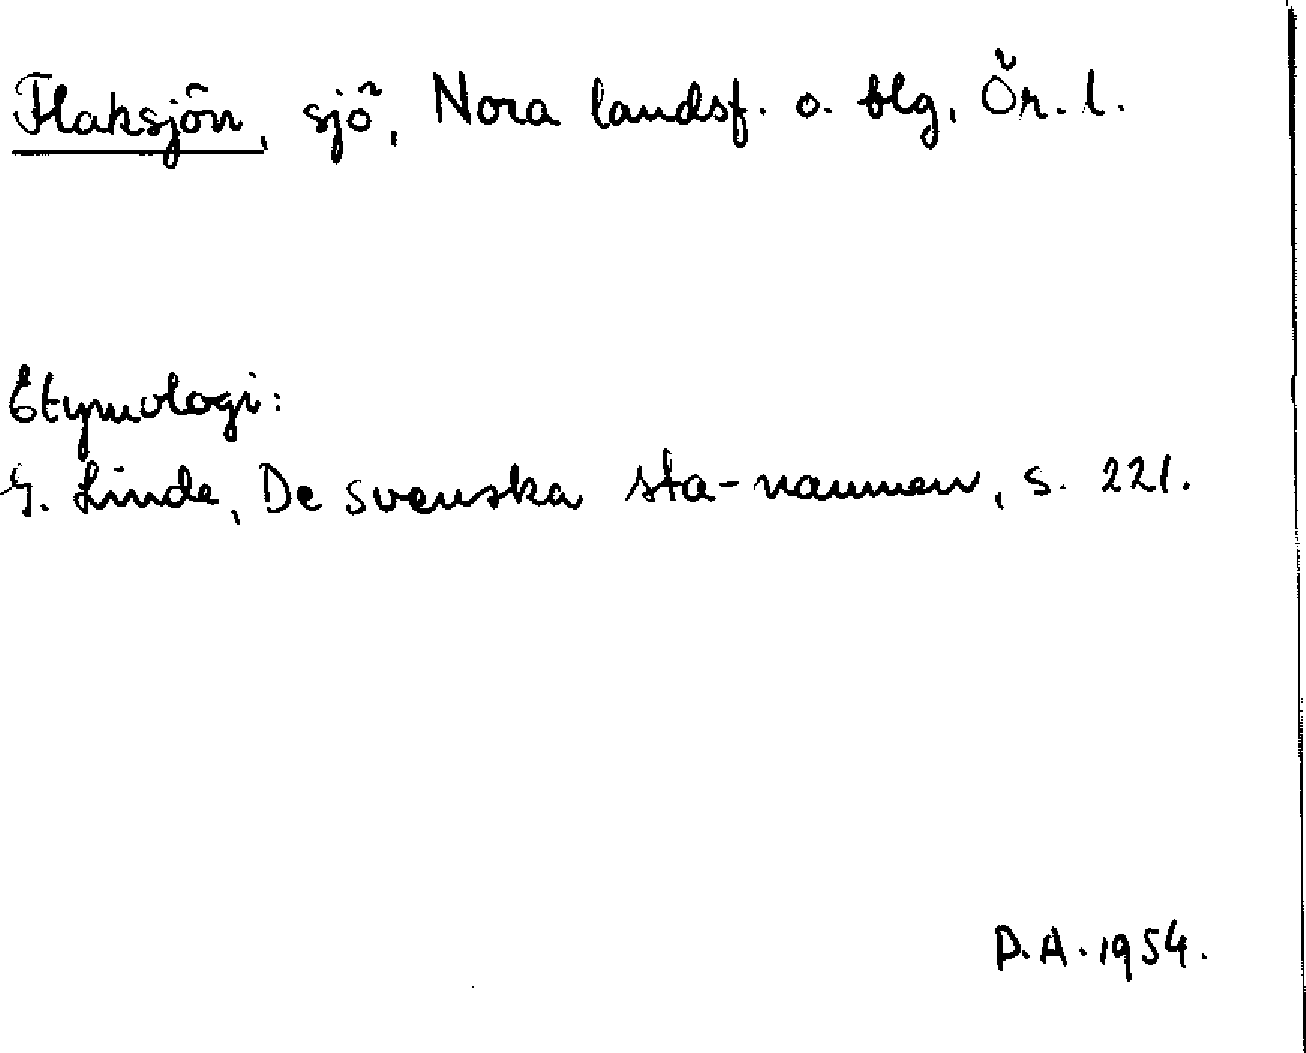 Flaksjön, sjö, Nora landsf. o. blg, Ör. l.
Etymologi:
G. Linde, De svenska sta-namnen, s. 221.
D.A. 1954.